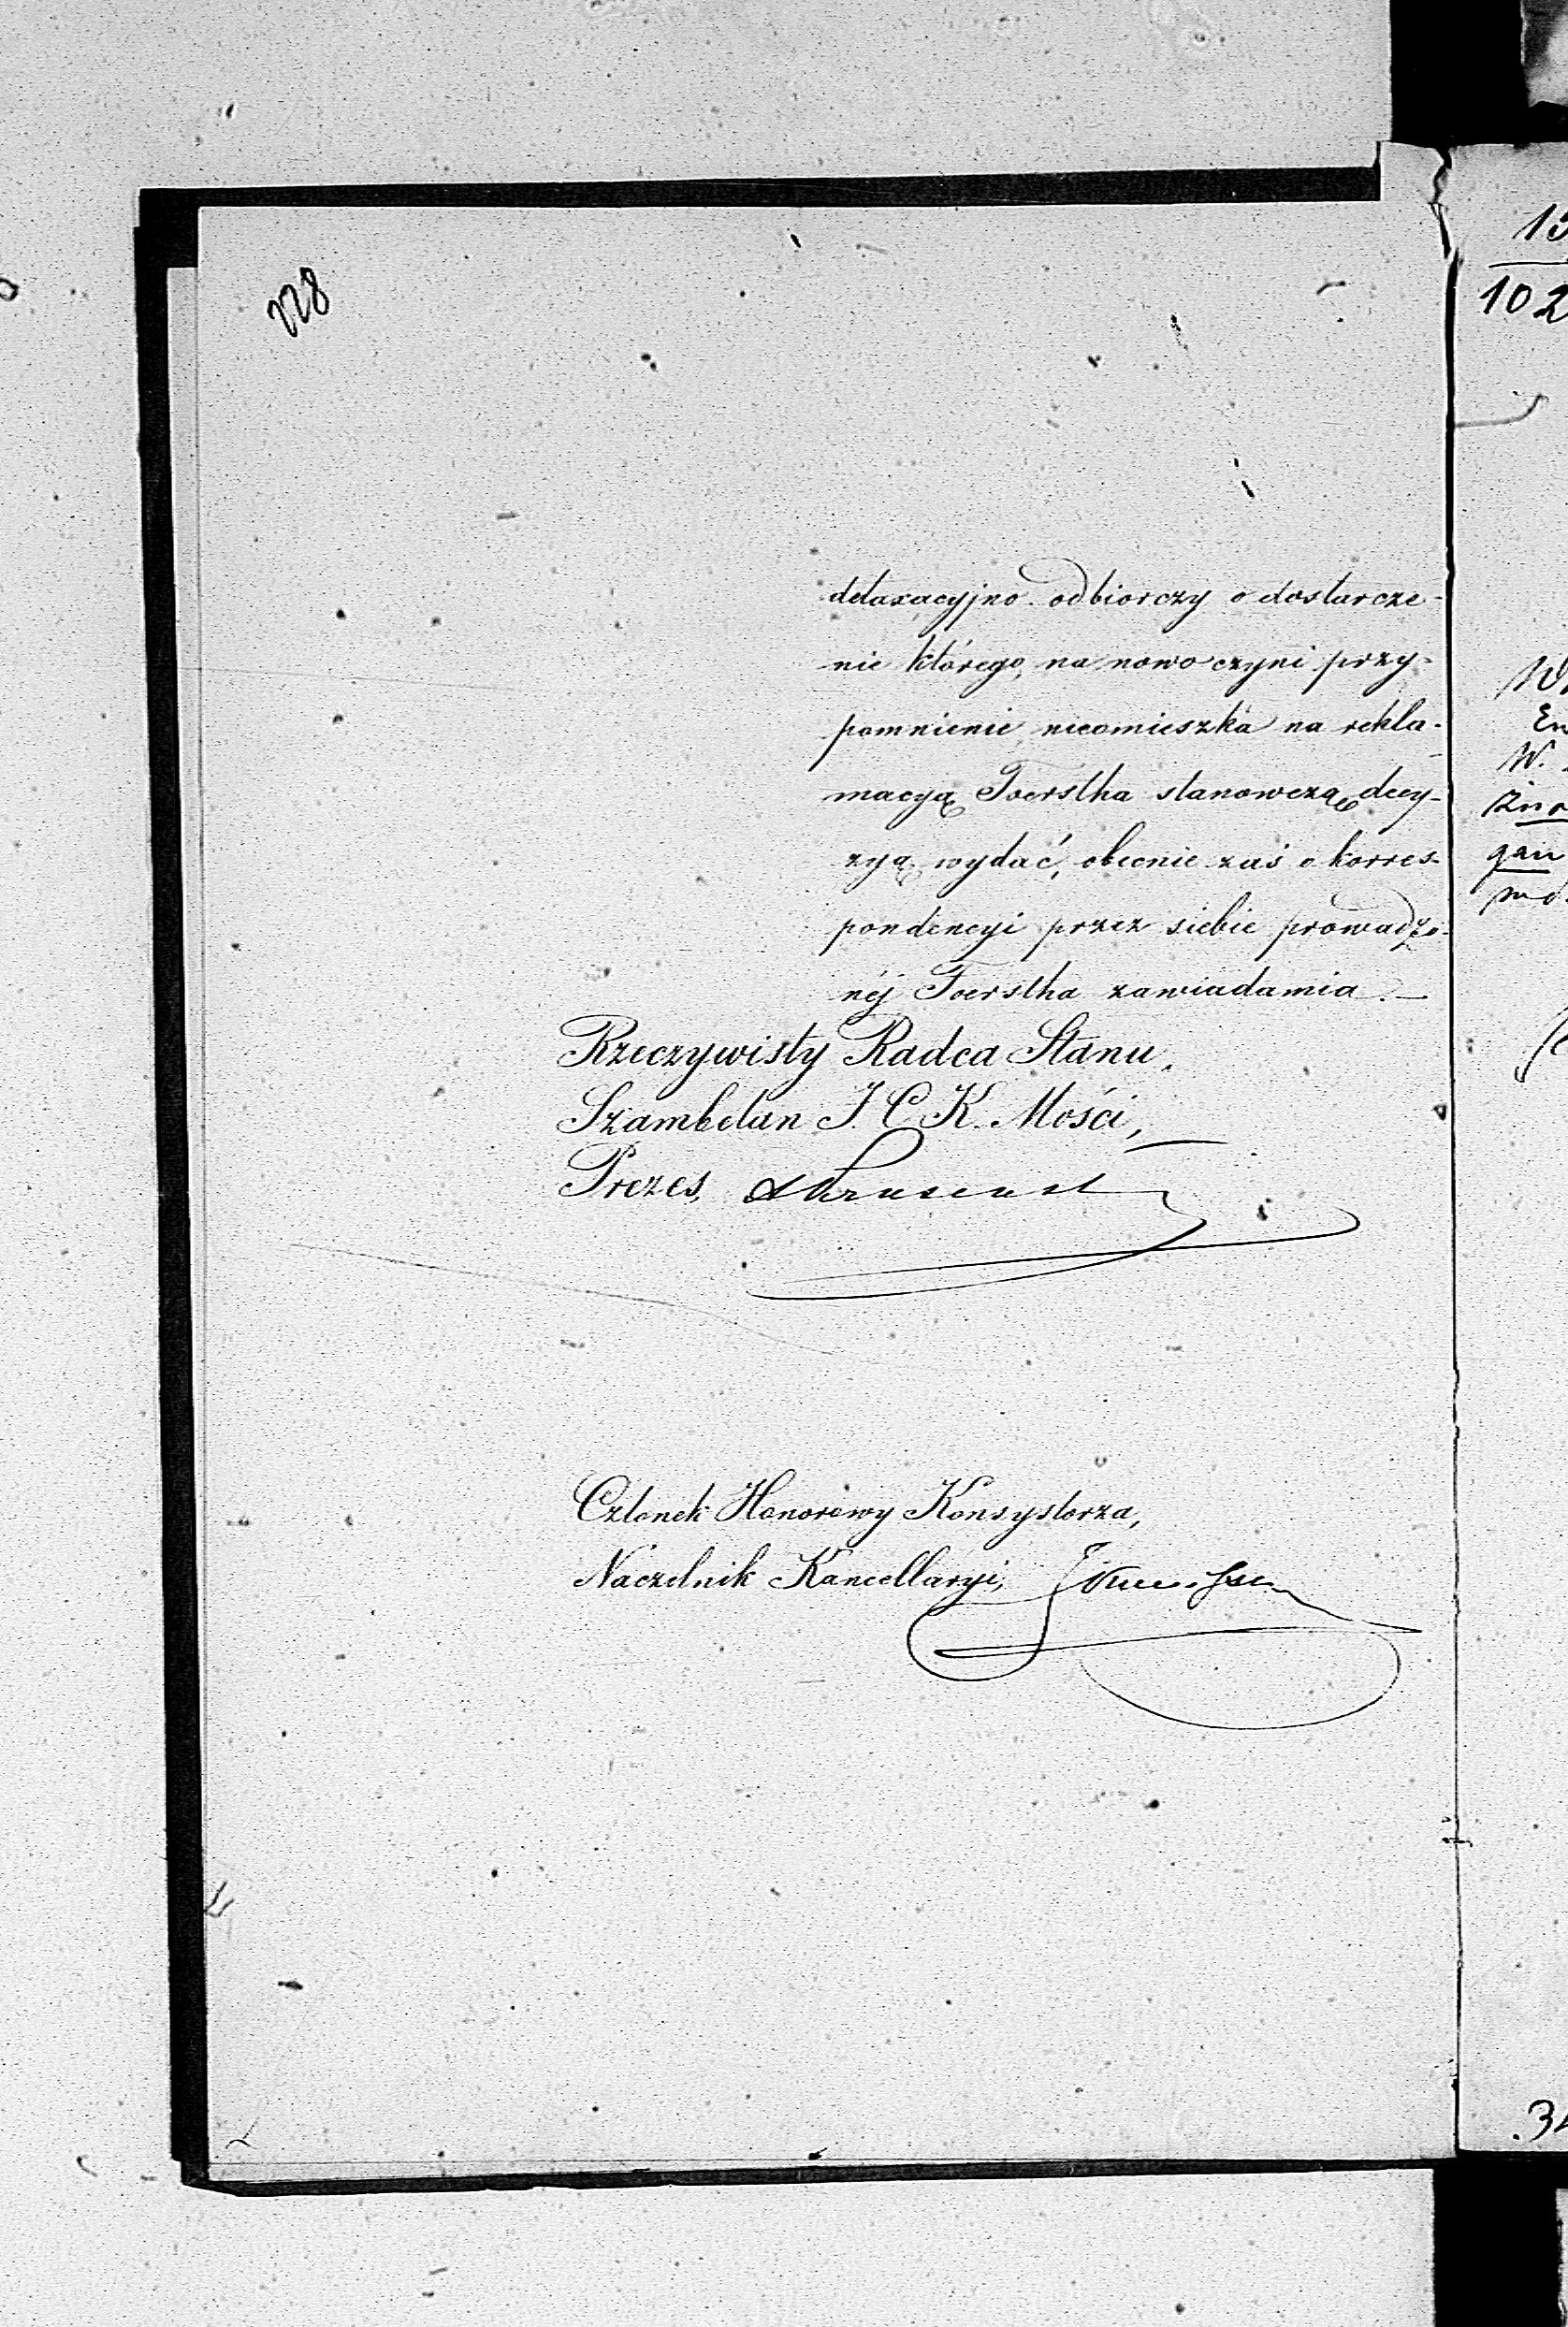 228
detaxacyjno-odbiorczy o dostarcze-
nie którego, na nowo czyni przy-
pomnienie nieomieszka na rekla-
macyą Foerstha stanowczą decy-
zyą wydać, obecnie zaś o korres-
pondencyi przez siebie prowadzo-
néj Foerstha zawiadamia.—
Rzeczywisty Radca Stanu,
Szambelan J. C. K. Mości,
Prezes,
Członek Honorowy Konsystorza,
Naczelnik Kancellaryi,
102